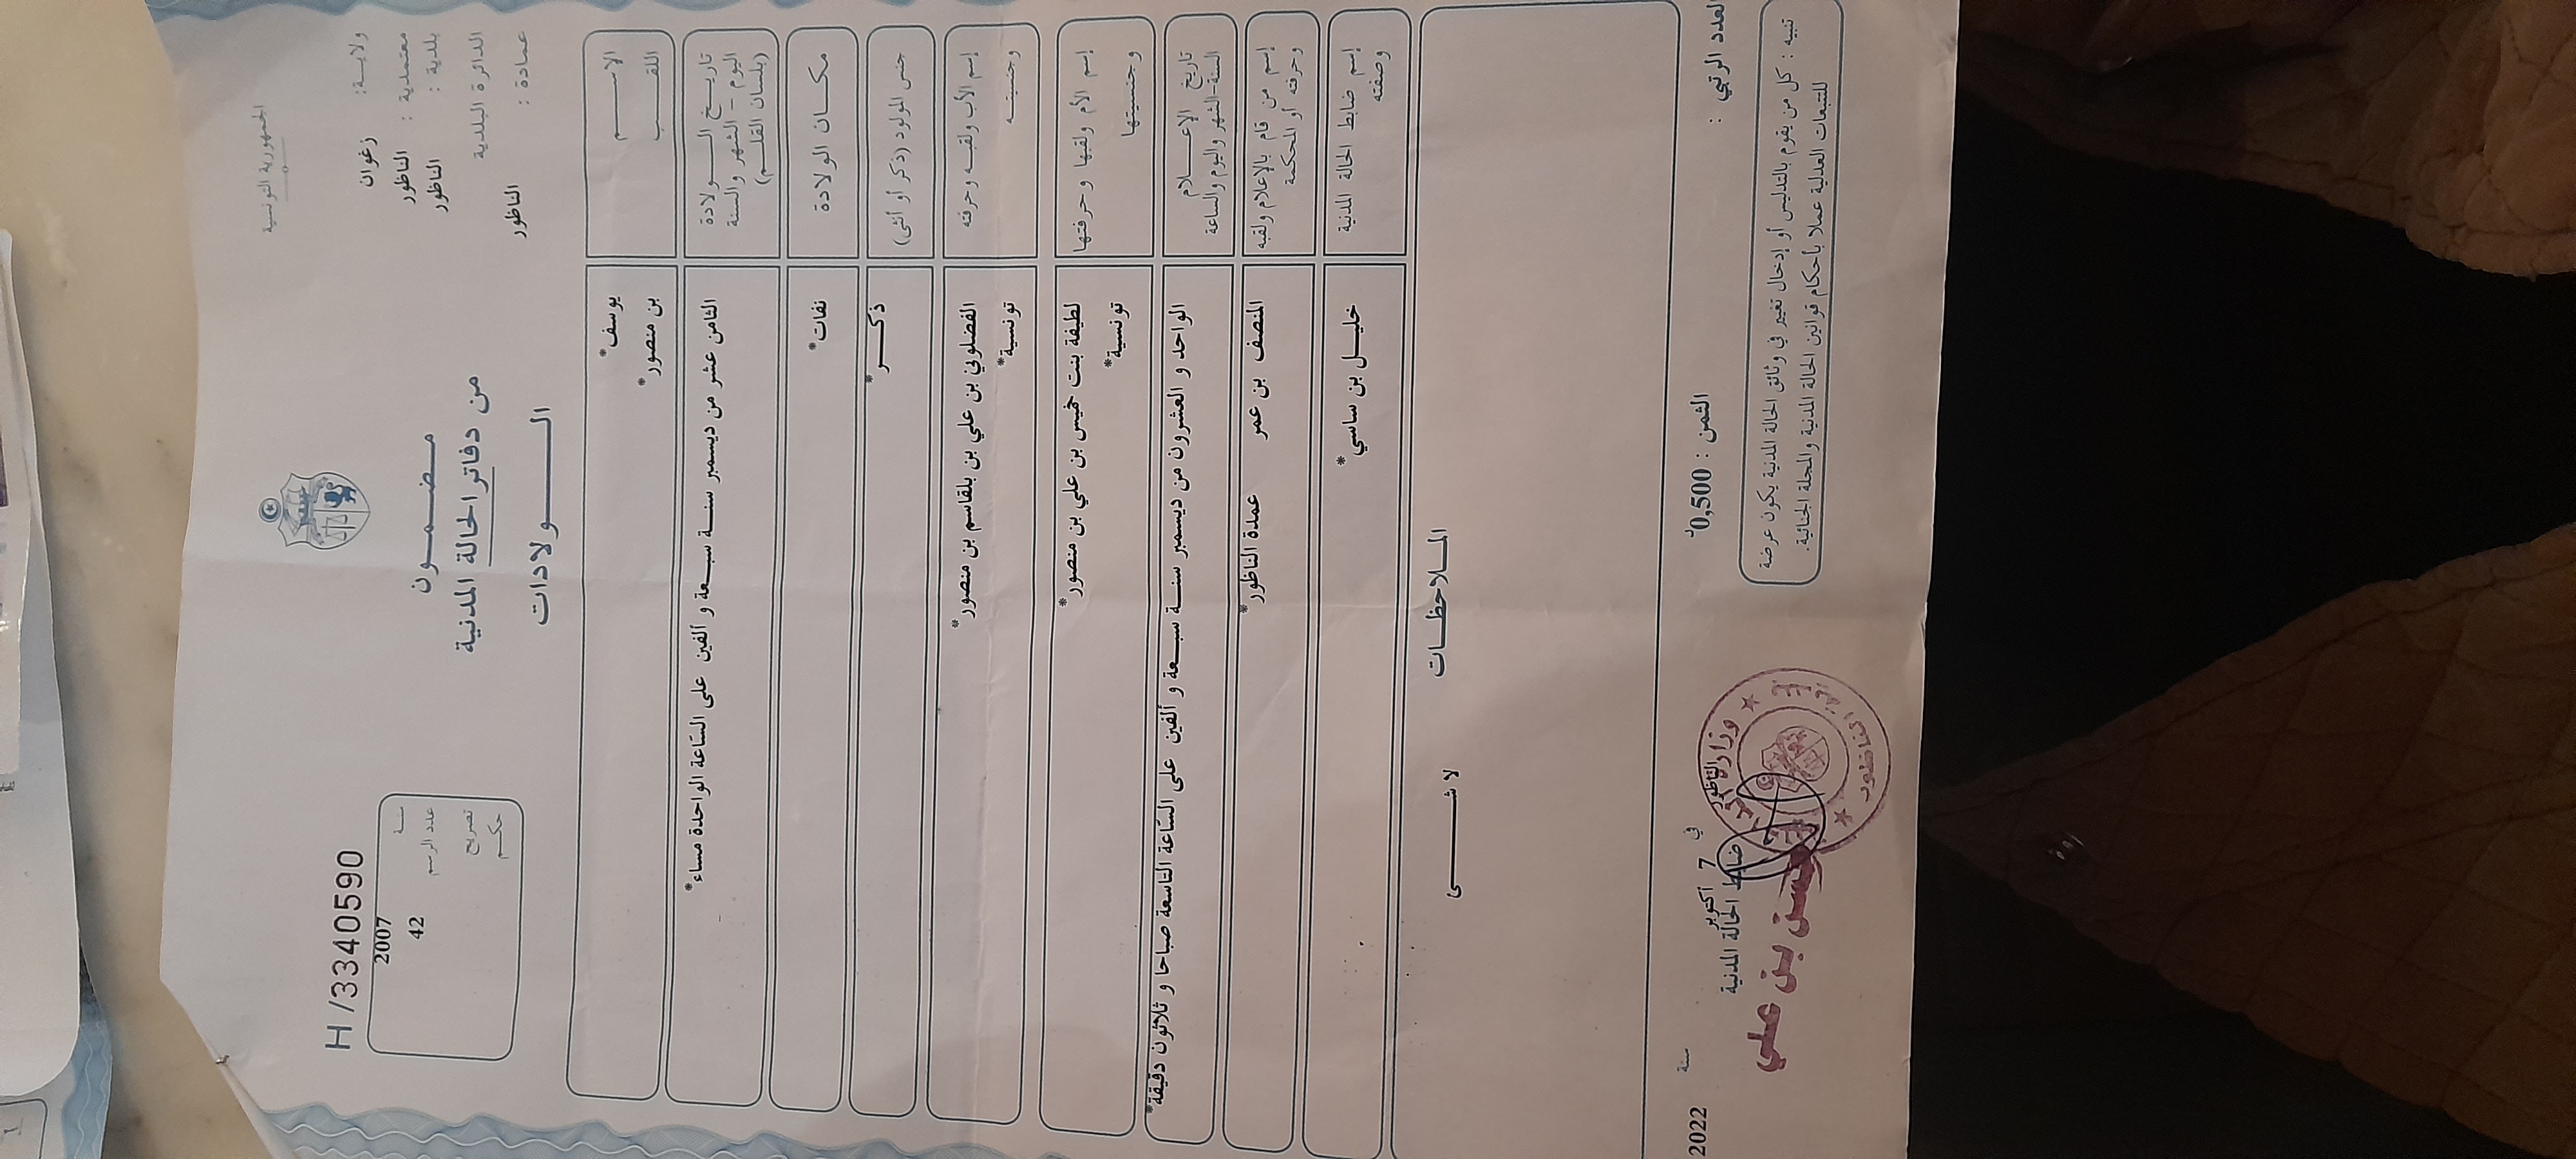 الجمهورية التونسية
ولاية: زغوان
معتمدية : الناظور
بلدية : الناظور
الدائرة البلدية
عمادة : الناظور
مضمون
من دفاتر الحالة المدنية
الولادات
H /3340590
سنة 2007
عدد الرسم 42
تصريح
حكم
الاسم يوسف*
اللقب بن منصور*
تاريخ الولادة
(اليوم - الشهر والسنة
بلسان القلم)
الثامن عشر من ديسمبر سنة سبعة و ألفين على الساعة الواحدة مساء*
مكان الولادة نفات*
جنس المولود (ذكر أو أنثى) ذكر*
إسم الأب ولقبه وحرفته الفضلوني بن علي بن بلقاسم بن منصور*
وجنسيته تونسية*
إسم الأم ولقبها وحرفتها لطيفة بنت خميس بن علي بن منصور*
وجنسيتها تونسية*
تاريخ الإعلام
السنة-الشهر واليوم والساعة
الواحد و العشرون من ديسمبر سنة سبعة و ألفين على الساعة التاسعة صباحا و ثلاثون دقيقة*
إسم من قام بالإعلام ولقبه
وحرفته أو المحكمة
المنصف بن عمر عمدة الناظور*
إسم ضابط الحالة المدنية
وصفته
خليل بن ساسي*
الملاحظات
لا شىء
العدد الرتبي :
الثمن : 0,500د
الناظور في 7 أكتوبر سنة 2022
ضابط الحالة المدنية
بن علي
وزارة
الناظور
تنبيه : كل من يقوم بالتدليس أو إدخال تغيير في وثائق الحالة المدنية يكون عرضة
للتتبعات العدلية عملا بأحكام قوانين الحالة المدنية والمجلة الجنائية.